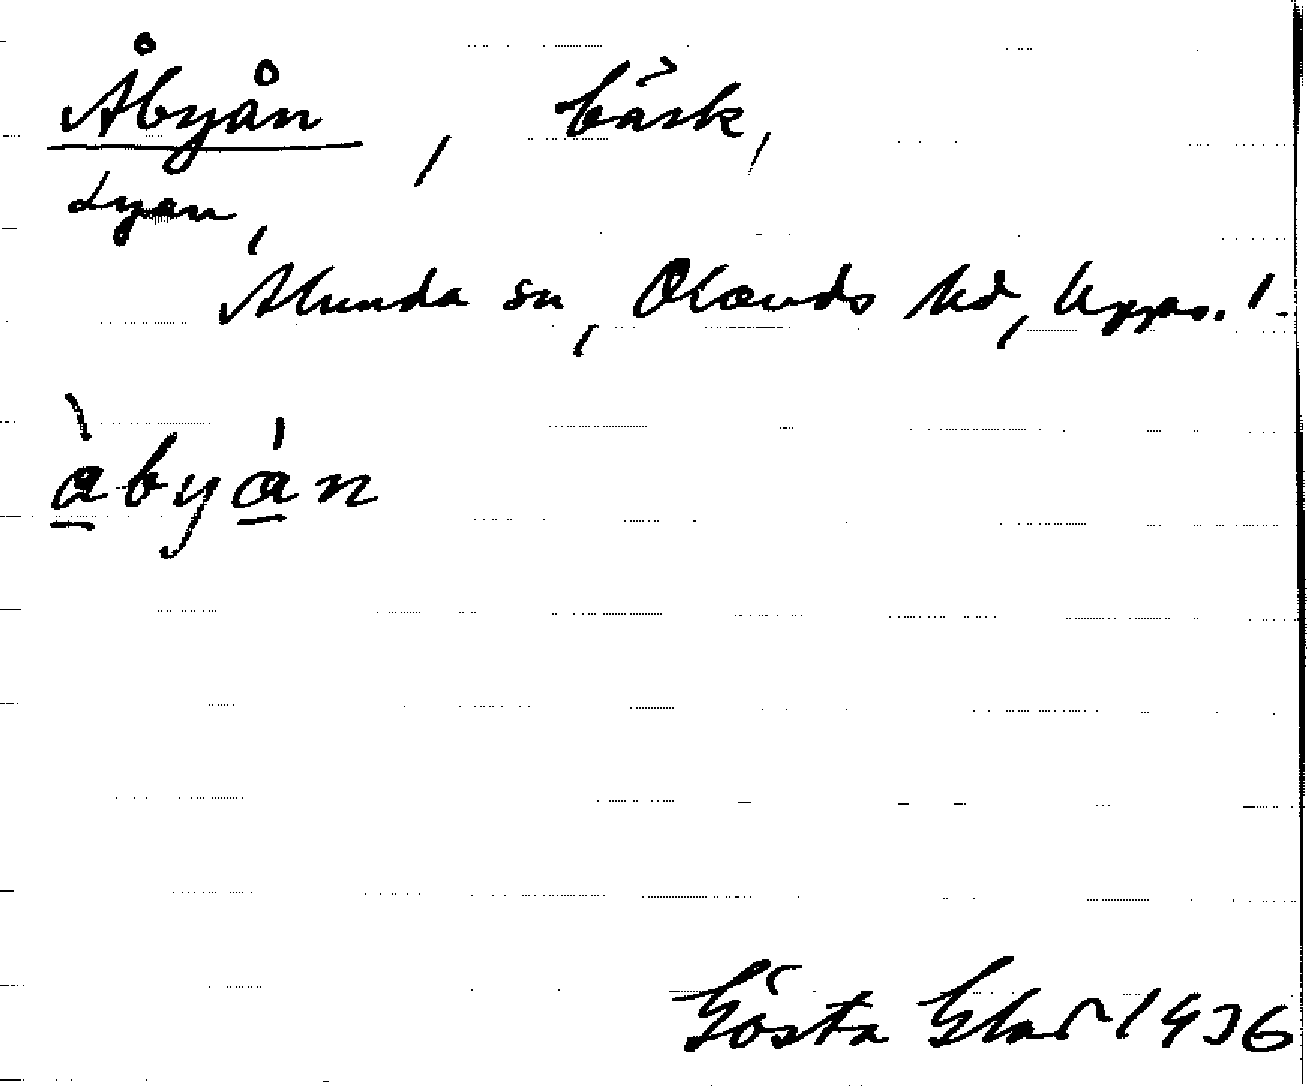 Åbyån, bäck,
Lyan,
Alunda sn, Olands hd, Upps. l.
àbyán
Gösta 1936